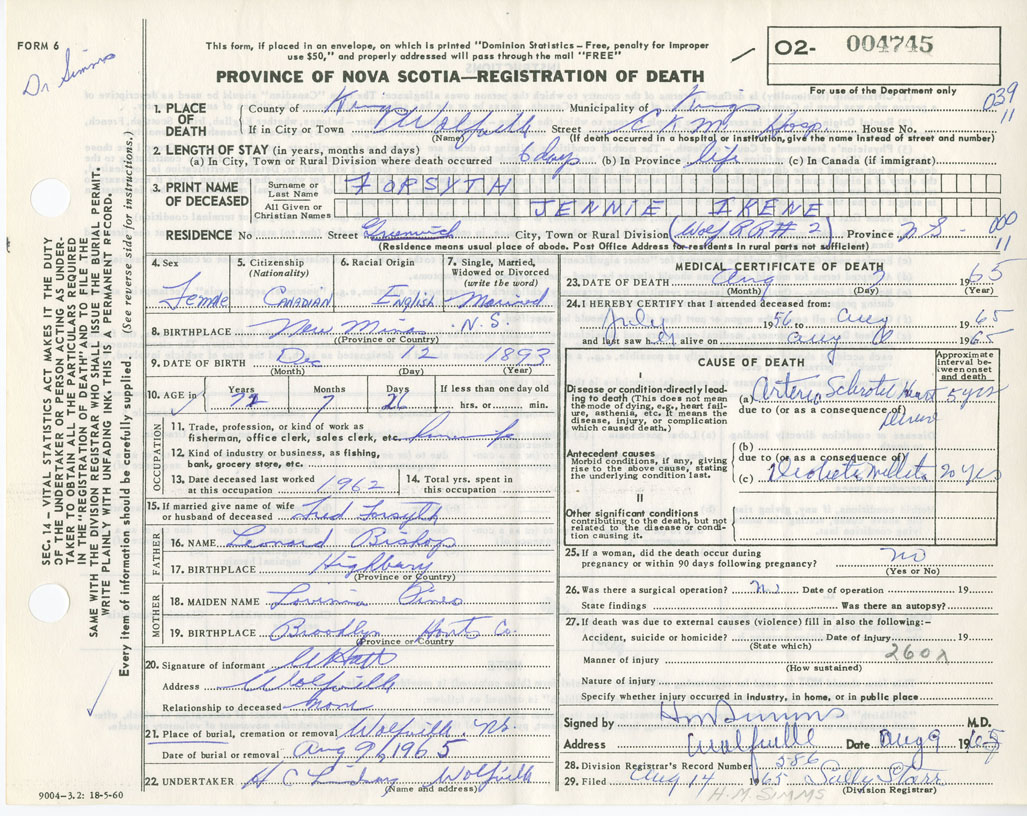 FORM 6
Dr Simms
This form, if placed in an envelope, on which is printed "Dominion Statistics – Free, penalty for improper
use $50," and properly addressed will pass through the mail "FREE"
O2- 004745
PROVINCE OF NOVA SCOTIA—REGISTRATION OF DEATH
For use of the Department only
039
11
1. PLACE OF DEATH
County of Kings Municipality of Kings
If in City or Town Wolfville Street E K M Hosp House No.
(Name) (If death occurred in a hospital or institution, give the name instead of street and number)
2. LENGTH OF STAY (in years, months and days)
(a) In City, Town or Rural Division where death occurred 6 days (b) In Province life (c) In Canada (if immigrant)
3. PRINT NAME OF DECEASED
Surname or Last Name FORSYTH
All Given or Christian Names JENNIE IRENE
RESIDENCE No Street Greenwich City, Town or Rural Division (Wolf RR# 2) Province N S -
000
11
(Residence means usual place of abode. Post Office Address for residents in rural parts not sufficient)
4. Sex Female
5. Citizenship (Nationality) CANADIAN
6. Racial Origin English
7. Single, Married, Widowed or Divorced (write the word) Married
8. BIRTHPLACE New Minas N.S.
(Province or Country)
9. DATE OF BIRTH Dec 12 1893
(Month) (Day) (Year)
10. AGE in Years Months Days If less than one day old
7 26 hrs. or min.
OCCUPATION
11. Trade, profession, or kind of work as
fisherman, office clerk, sales clerk, etc.
12. Kind of industry or business, as fishing,
bank, grocery store, etc.
13. Date deceased last worked at this occupation 1962
14. Total yrs. spent in this occupation
15. If married give name of wife or husband of deceased Fred Forsyth
FATHER
16. NAME Leonard Bishop
17. BIRTHPLACE Highbury
(Province or Country)
MOTHER
18. MAIDEN NAME Lovinia Pineo
19. BIRTHPLACE Brooklyn Hants Co.
(Province or Country)
20. Signature of informant
Address Wolfville
Relationship to deceased none
21. Place of burial, cremation or removal Wolfville, N.S.
Date of burial or removal Aug 9, 1965
22. UNDERTAKER H C Lindsay Wolfville
(Name and address)
9004-3.2: 18-5-60
MEDICAL CERTIFICATE OF DEATH
23. DATE OF DEATH Aug 7 1965
(Month) (Day) (Year)
24. I HEREBY CERTIFY that I attended deceased from:
July 1956 to Aug 1965
and last saw h er alive on Aug 6 1965
CAUSE OF DEATH
Approximate interval between onset and death
I
Disease or condition directly leading to death (This does not mean the mode of dying, e.g., heart failure, asthenia, etc. It means the disease, injury, or complication which caused death.)
(a) Arterio Sclrotic Heart 5 yrs
due to (or as a consequence of)
Disease
Antecedent causes
Morbid conditions, if any, giving rise to the above cause, stating the underlying condition last.
(b)
due to (or as a consequence of)
(c) Diabetes Mellitis 20 yrs
II
Other significant conditions
contributing to the death, but not related to the disease or condition causing it.
25. If a woman, did the death occur during
pregnancy or within 90 days following pregnancy? no
(Yes or No)
26. Was there a surgical operation? No Date of operation 19
State findings Was there an autopsy?
27. If death was due to external causes (violence) fill in also the following:–
Accident, suicide or homicide? Date of injury 19
(State which)
260x
Manner of injury
(How sustained)
Nature of injury
Specify whether injury occurred in industry, in home, or in public place
Signed by H M Simms M.D.
Address Wolfville Date Aug 9 1965
28. Division Registrar's Record Number 586
29. Filed Aug 14 1965 Sally Starr
(Division Registrar)
H.M. SIMMS
SEC. 14 – VITAL STATISTICS ACT MAKES IT THE DUTY
OF THE UNDERTAKER OR PERSON ACTING AS UNDER-
TAKER TO OBTAIN ALL THE PARTICULARS REQUIRED
IN THE "REGISTRATION OF DEATH" AND TO FILE THE
SAME WITH THE DIVISION REGISTRAR WHO SHALL ISSUE THE BURIAL PERMIT.
WRITE PLAINLY WITH UNFADING INK. THIS IS A PERMANENT RECORD.
Every item of information should be carefully supplied. (See reverse side for instructions.)